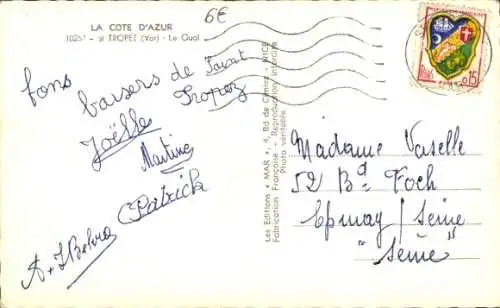 6€
LA COTE D'AZUR
10257 - St TROPEZ (Var) - Le Quai
bons
baisers de Saint
Tropez
Joëlle
Martine
Patrick
Les Editions "MAR", 4, Bd de Cimiez - NICE
Fabrication Française - Reproduction interdite
Photo véritable
0,15
Madame Vaselle
52 Bd Foch
Epinay / Seine
"Seine"